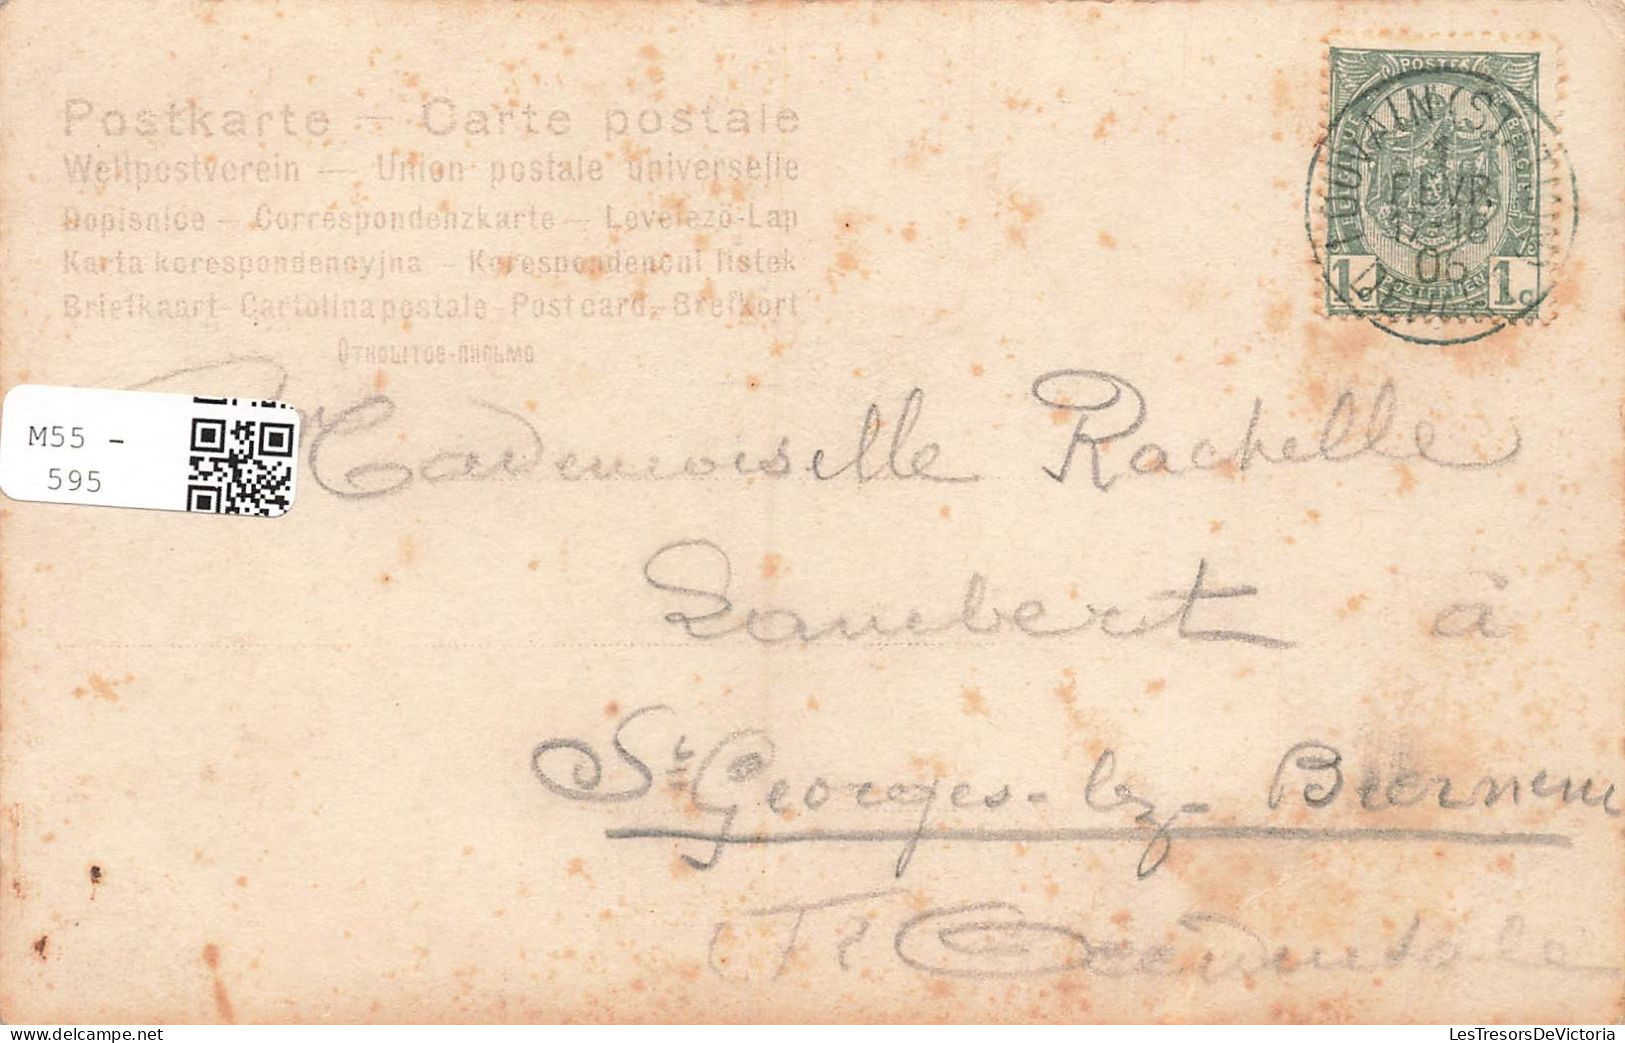 Postkarte — Carte postale
Weltpostverein — Union postale universelle
Dopisnice — Correspondenzkarte — Levelező-Lap
Karta korespondencyjna — Korespondencni listek
Briefkaart-Cartolina postale-Postcard-Brefkort
Открытое-письмо
POSTES
BELGIQUE
1c 1c
LOUVAIN (STATION)
1
FEVR
17-18
06
LEUVEN
M55 -
595
Mademoiselle Rachelle
Lambert à
St Georges-lez-Beernem
(Fl Occidentale
LesTresorsDeVictoria